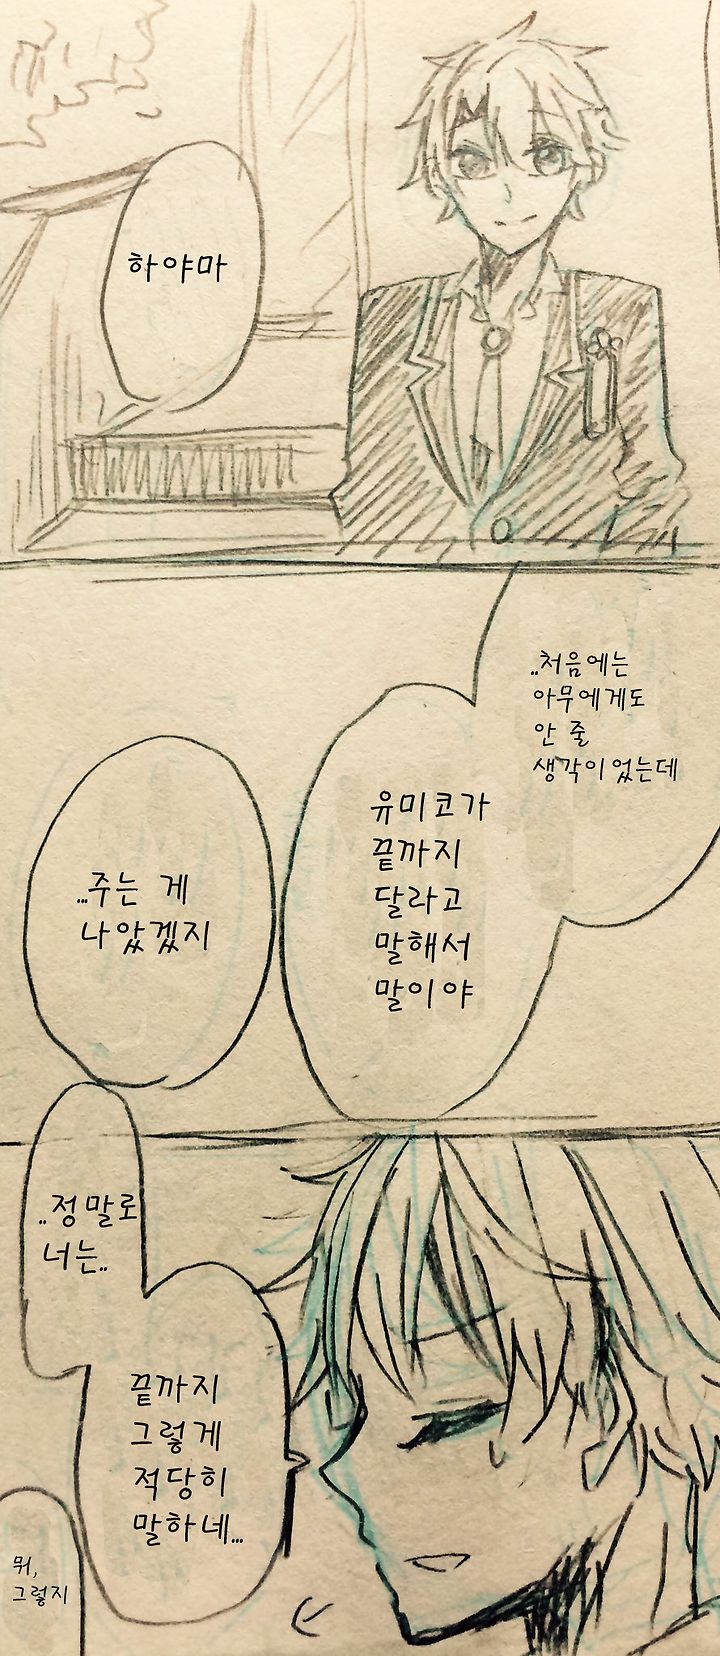 하야마
..처음에는
아무에게도
안 줄
생각이었는데
유미코가
끝까지
달라고
말해서
말이야
...주는 게
나았겠지
..정말로
너는..
끝까지
그렇게
적당히
말하네...
뭐,
그렇지